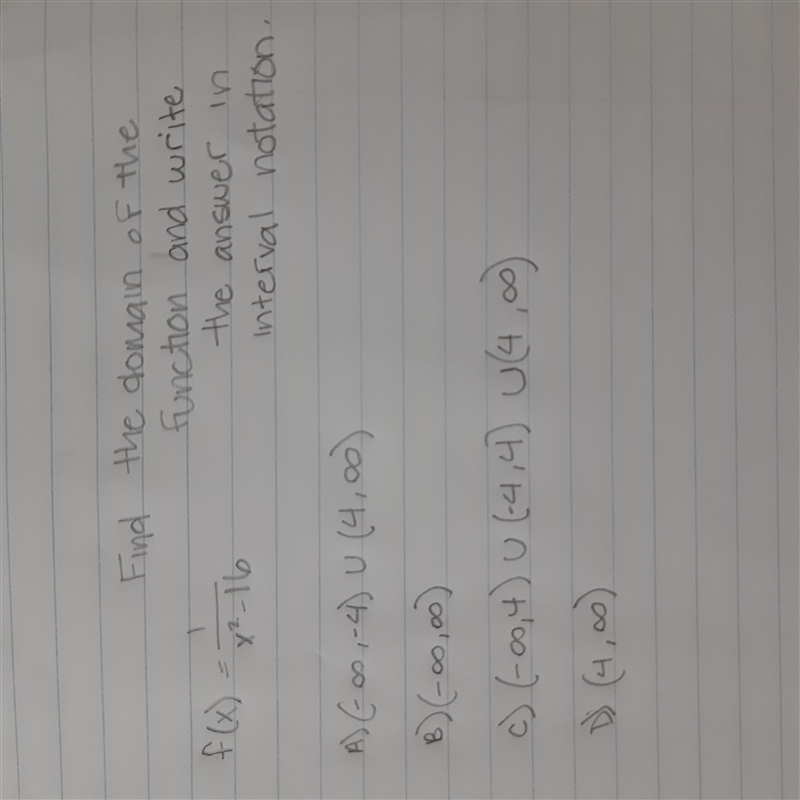 Find the domain of the
function and write
the answer in
interval notation.
f(x) = 1/x²-16
A) (-∞,-4) ∪ (4,∞)
B) (-∞,∞)
C) (-∞,4) ∪ (-4,4) ∪ (4,∞)
D) (4,∞)